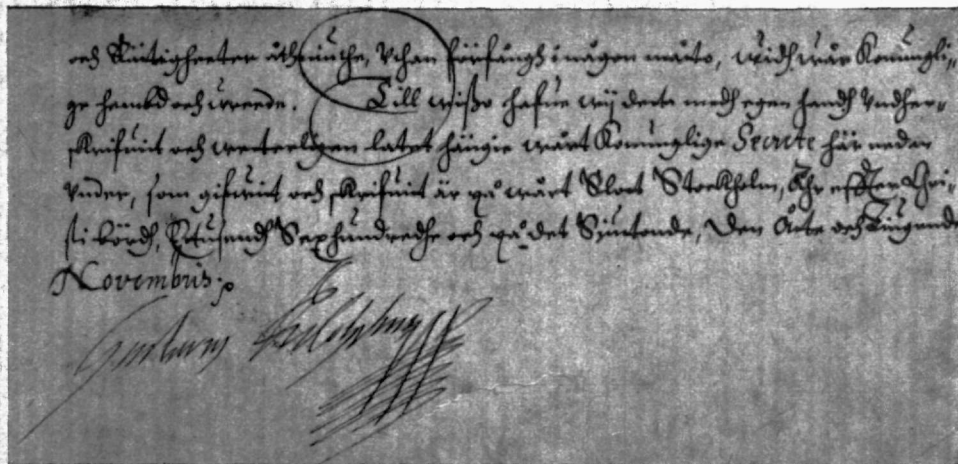 och Rättigheeter åthniuthe, Vthan förfångh i någon måtto, widh wår Konungli-,
ge hembd och wreede. Till wisso hafue wij dette medh egen handh Vndher-,
skrifuit och wetterligen latet hängie wårt Konunglige Secrete här neden
Vnder, som gifwuit och skrifuit är på wårt Slott Stockholm, Åhr effter Chri-
sti bördh, Ettusendh Sexhundredhe och på det Siuttonde, Den Åtte och Tiugende
Novembris
Gustavus Adolphus